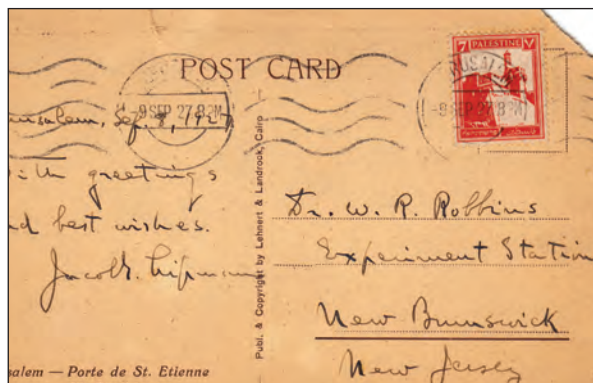 POST CARD
7 PALESTINE V
RUSAL
-9 SEP 27 8 PM
-9 SEP 27 8 PM
rusalem, Sep. 8, 1927
ith greetings
nd best wishes.
Jacob G. Lipman
Publ. & Copyright by Lehnert & Landrock, Cairo
Dr. W. R. Robbins
Experiment Station
New Brunswick
New Jersey
salem — Porte de St. Etienne